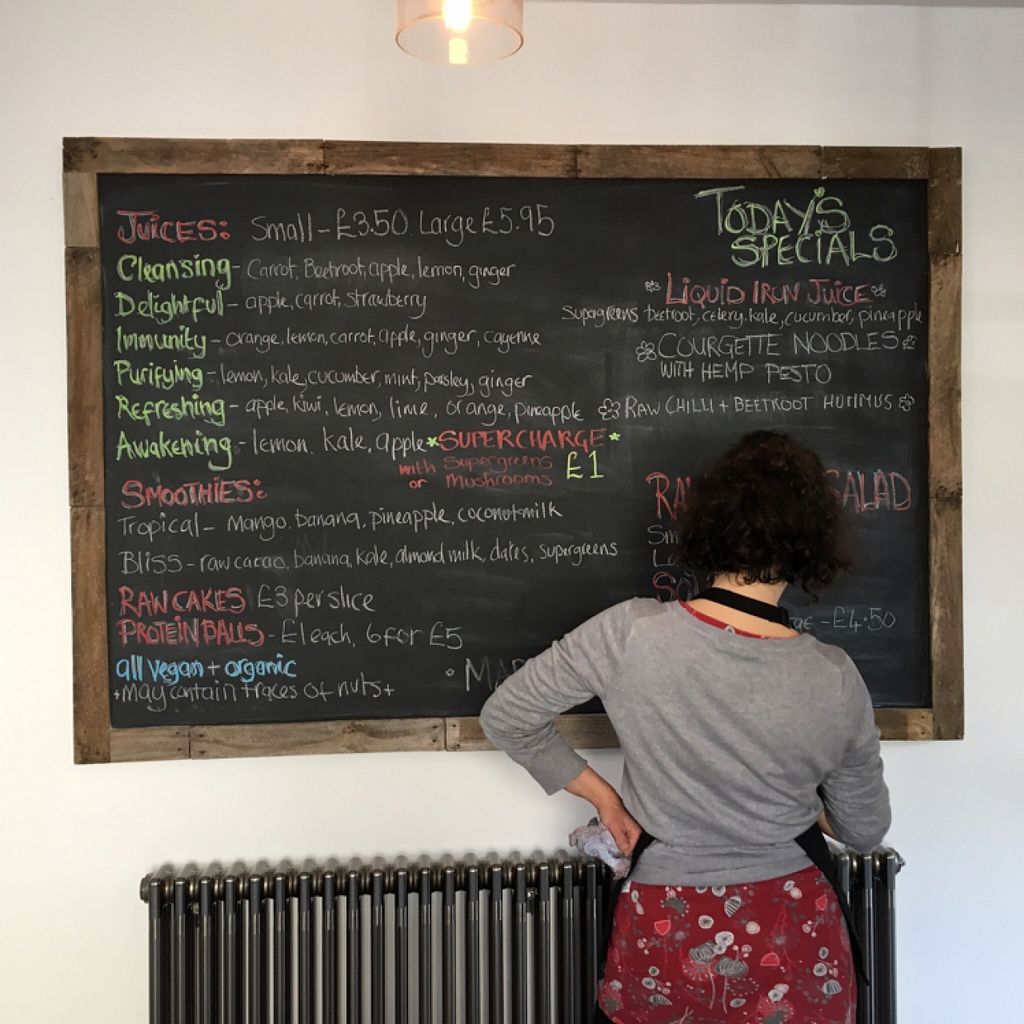 JUICES: Small - £3.50 Large £5.95
Cleansing - Carrot, Beetroot, apple, lemon, ginger
Delightful - apple, carrot, strawberry
Immunity - orange, lemon, carrot, apple, ginger, cayenne
Purifying - lemon, kale, cucumber, mint, parsley, ginger
Refreshing - apple, kiwi, lemon, lime, orange, pineapple
Awakening - lemon, kale, apple *SUPERCHARGE*
with supergreens £1
or mushrooms
SMOOTHIES:
Tropical - Mango, banana, pineapple, coconut milk
Bliss - raw cacao, banana, kale, almond milk, dates, supergreens
RAW CAKES £3 per slice
PROTEIN BALLS - £1 each, 6 for £5
all vegan + organic
+may contain traces of nuts+
TODAY'S
SPECIALS
LIQUID IRON JUICE
Supergreens beetroot, celery, kale, cucumber, pineapple
COURGETTE NOODLES
WITH HEMP PESTO
RAW CHILLI + BEETROOT HUMMUS
SALAD
- £4.50